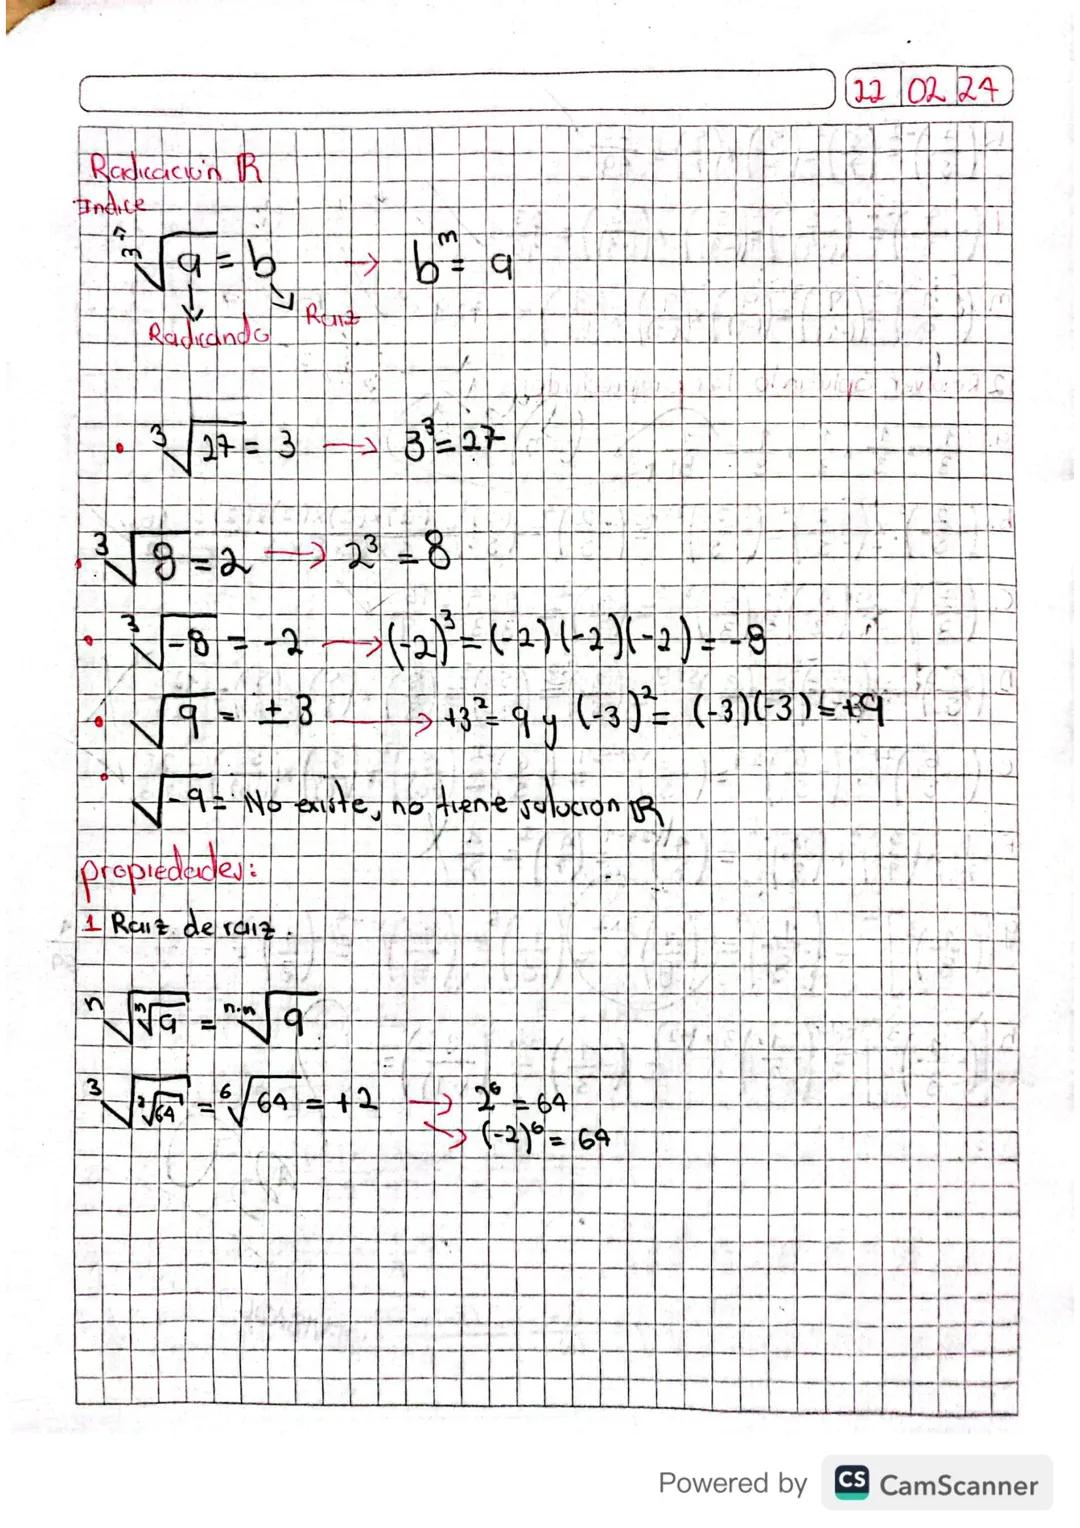 22 02 24
Radicación ℝ
Indice
ᵐ√a = b → bᵐ = a
Raiz
Radicando
• ³√27 = 3 → 3³ = 27
• ³√8 = 2 → 2³ = 8
• ³√-8 = -2 → (-2)³ = (-2)(-2)(-2) = -8
• √9 = ± 3 → +3² = 9 y (-3)² = (-3)(-3) = +9
• √-9 = No existe, no tiene solucion ℝ
propiedades:
1 Raiz de raiz.
ⁿ√ᵐ√a = ⁿ·ᵐ√a
³√²√64 = ⁶√64 = +2 → 2⁶ = 64
→ (-2)⁶ = 64
Powered by CS CamScanner